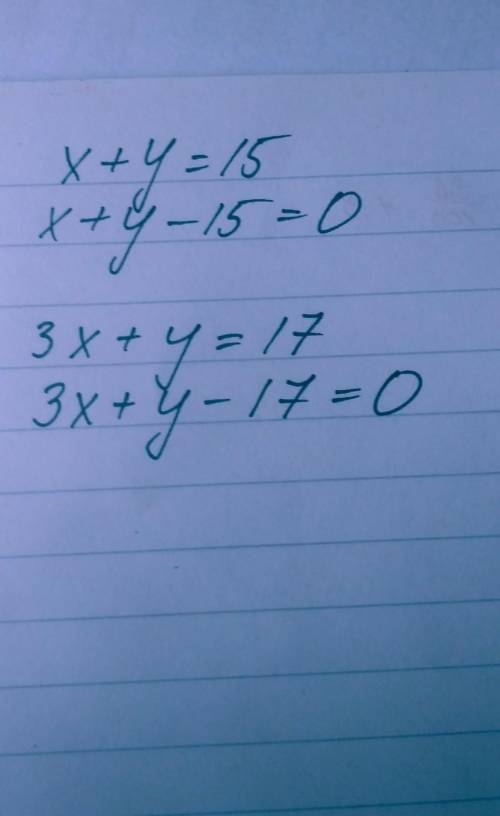 x + y = 15
x + y - 15 = 0
3x + y = 17
3x + y - 17 = 0